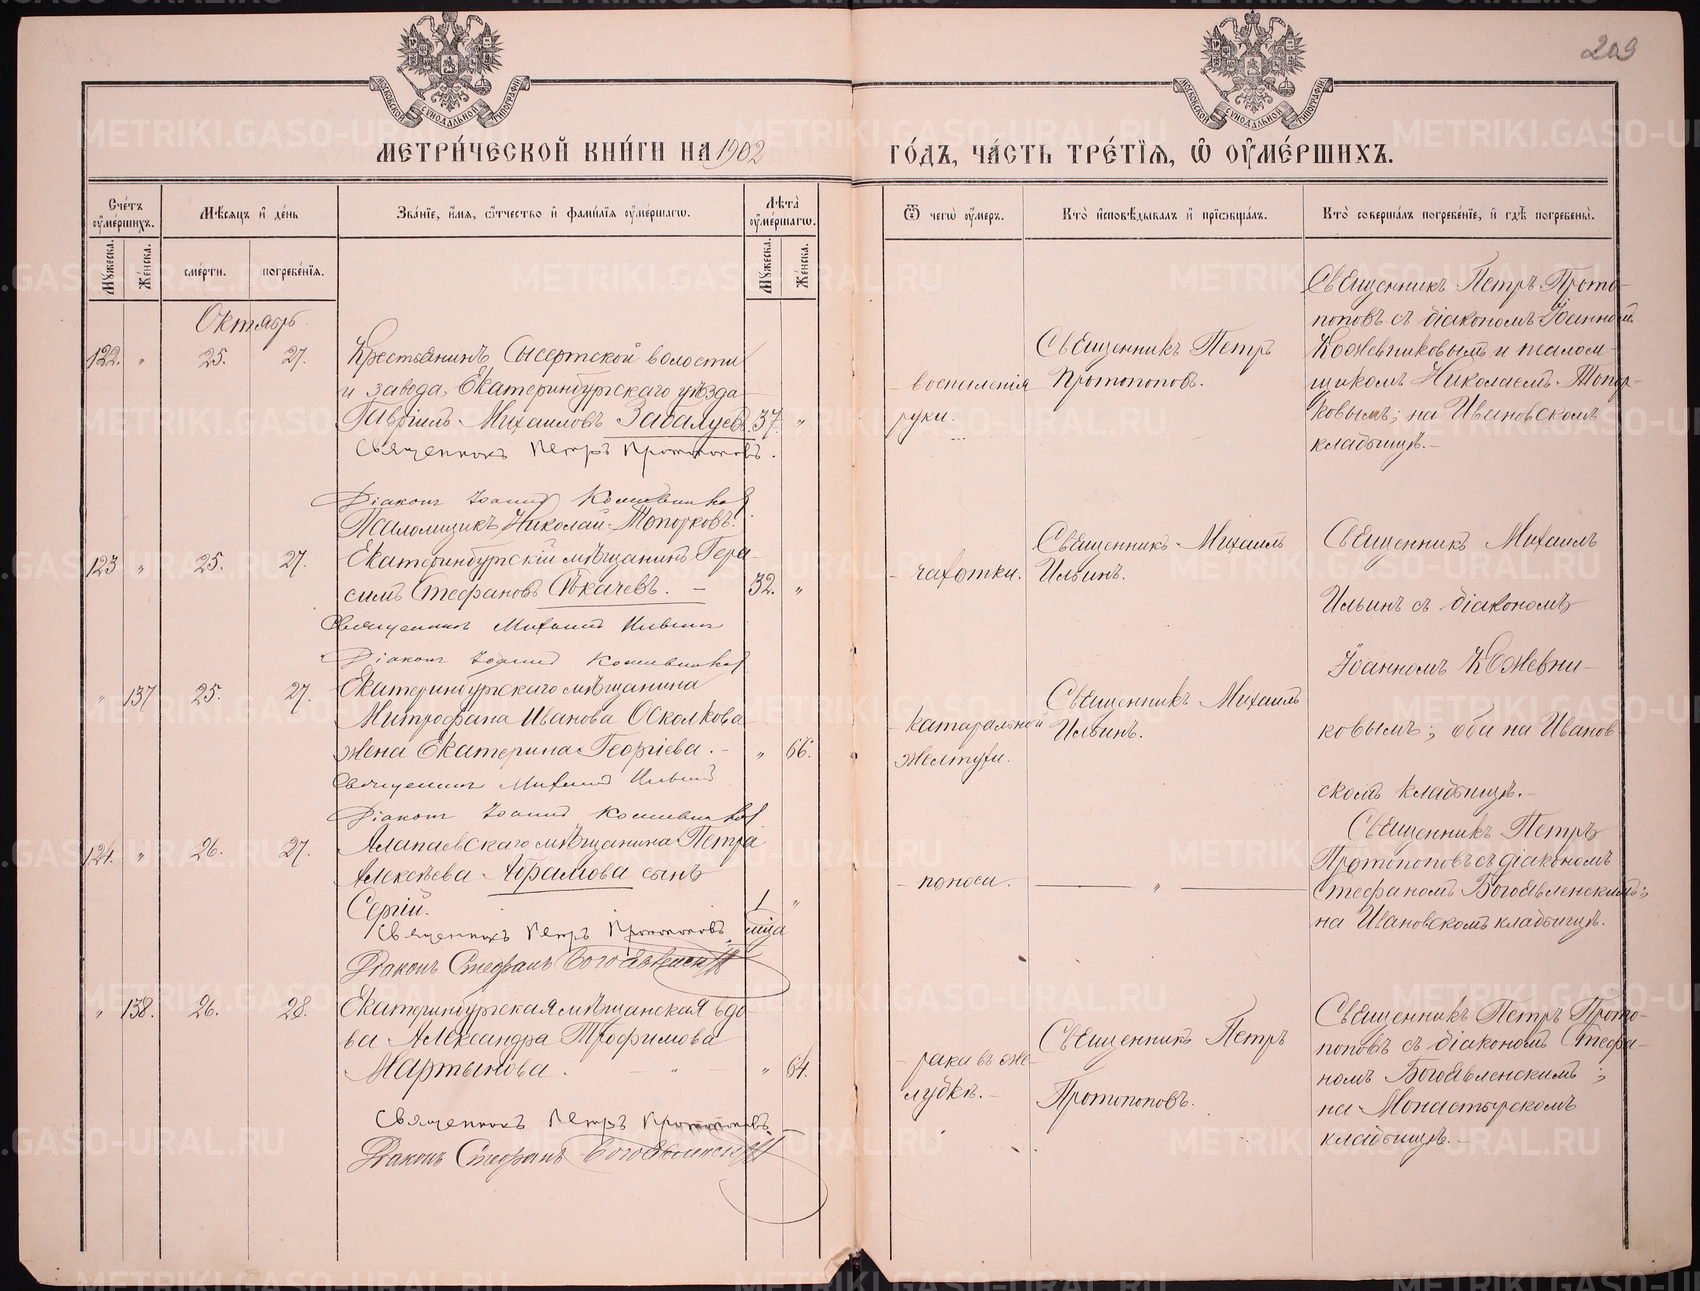 209
МОСКОВСКОЙ СѴНОДАЛЬНОЙ ТИПОГРАФІИ
МОСКОВСКОЙ СѴНОДАЛЬНОЙ ТИПОГРАФІИ
МЕТРИ́ЧЕСКОЙ КНИ́ГИ НА 1902 ГО́ДЪ, ЧА́СТЬ ТРЕ́ТІѦ, Ѡ҆ ОУ҆МЕ́РШИХЪ.
Сче́тъ оу҆ме́ршихъ.
Мѣ́сѧцъ и҆ де́нь
Зва́нїе, и҆́мѧ, ѻ҆́тчество и҆ фами́лїѧ оу҆ме́ршагѡ.
Лѣ́та оу҆ме́ршагѡ.
Ѿ чегѡ̀ оу҆́меръ.
Кто̀ и҆сповѣ́дывалъ и҆ прїѡбща́лъ.
Кто̀ соверша́лъ погребе́нїе, и҆ гдѣ̀ погребены̀.
Мꙋ́жеска.
Же́нска.
сме́рти.
погребе́нїѧ.
Мꙋ́жеска.
Же́нска.
Октябрь.
122. " 25. 27.
Крестьянинъ Сысертской волости
и завода, Екатеринбургскаго уѣзда
Гавріилъ Михаиловъ Забалуевъ. 37. "
Священникъ Петръ Протопоповъ.
Діаконъ Іоаннъ Кожевниковъ
Псаломщикъ Николай Топорковъ.
- воспаленія
руки.
Священникъ Петръ
Протопоповъ.
Священникъ Петръ Прото-
поповъ съ діакономъ Іоанномъ
Кожевниковымъ и псалом-
щикомъ Николаемъ Топор-
ковымъ; на Ивановскомъ
кладбищѣ.-
123 " 25. 27.
Екатеринбургскій мѣщанинъ Гера-
симъ Стефановъ Токачевъ. - 32. "
Священникъ Михаилъ Ильинъ
Діаконъ Іоаннъ Кожевниковъ
- чахотки.
Священникъ Михаилъ
Ильинъ.
Священникъ Михаилъ
Ильинъ съ діакономъ
Іоанномъ Кожевни-
ковымъ; оба на Иванов-
скомъ кладбищѣ.-
" 137 25. 27.
Екатеринбургскаго мѣщанина
Митрофана Иванова Осколкова
жена Екатерина Георгіева. - " 66.
Священникъ Михаилъ Ильинъ
Діаконъ Іоаннъ Кожевниковъ
- катаральной
желтухи.
Священникъ Михаилъ
Ильинъ.
124. " 26. 27.
Алапаевскаго мѣщанина Петра
Алексѣева Абрамова сынъ
Сергій. 1 "
Священникъ Петръ Протопоповъ.
Діаконъ Стефанъ Богоявленскій
- поноса.
"
Священникъ Петръ
Протопоповъ съ діакономъ
Стефаномъ Богоявленскимъ;
на Ивановскомъ кладбищѣ.
" 138. 26. 28.
Екатеринбургская мѣщанская вдо-
ва Александра Трофимова
Мартынова. - " - " 64.
Священникъ Петръ Протопоповъ
Діаконъ Стефанъ Богоявленскій
- рака въ же-
лудкѣ.-
Священникъ Петръ
Протопоповъ.
Священникъ Петръ Прото-
поповъ съ діакономъ Стефа-
номъ Богоявленскимъ;
на Монастырскомъ
кладбищѣ.-
METRIKI.GASO-URAL.RU